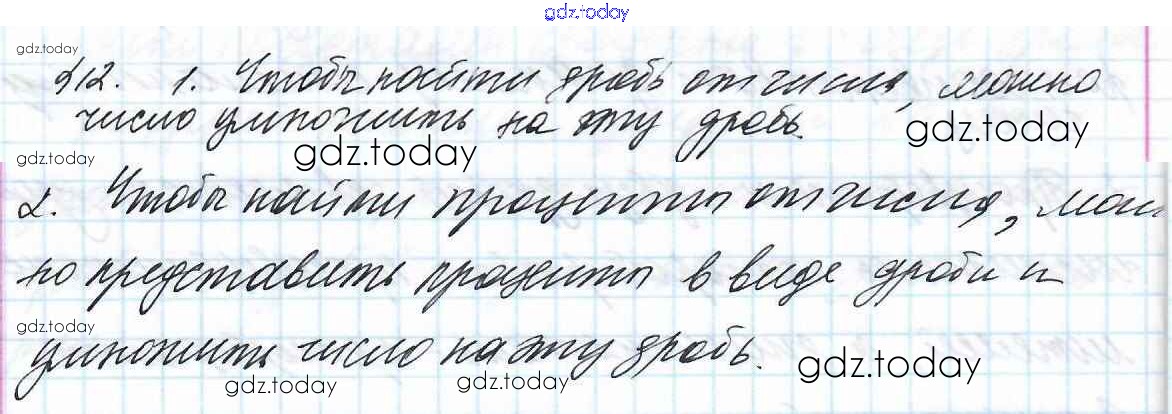 gdz.today
gdz.today
§12. 1. Чтобы найти дробь от числа, можно
число умножить на эту дробь.
gdz.today
gdz.today
gdz.today
2. Чтобы найти проценты от числа, мож
но представить проценты в виде дроби и
gdz.today
умножить число на эту дробь.
gdz.today
gdz.today
gdz.today